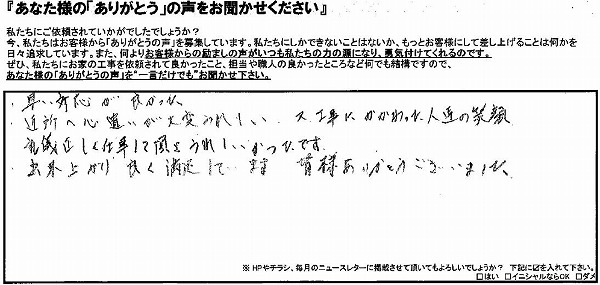 『あなた様の「ありがとう」の声をお聞かせください』
私たちにご依頼されていかがでしたでしょうか?
今、私たちはお客様から「ありがとうの声」を募集しています。私たちにしかできないことはないか、もっとお客様にして差し上げることは何かを
日々追求しています。また、何よりお客様からの励ましの声がいつも私たちの力の源になり、勇気付けてくれるのです。
ぜひ、私たちにお家の工事を依頼されて良かったこと、担当や職人の良かったところなど何でも結構ですので、
あなた様の「ありがとうの声」を"一言だけでも"お聞かせ下さい。
・早い対応が良かった
・近所への心遣いが大変うれしい 又工事にかかわった人達の笑顔
礼儀正しく仕事して頂きうれしいかったです。
・出来上がり良く満足しています 皆様ありがとうございました。
※HPやチラシ、毎月のニュースレターに掲載させて頂いてもよろしいでしょうか? 下記に☑を入れて下さい。
□はい □イニシャルならOK □ダメ